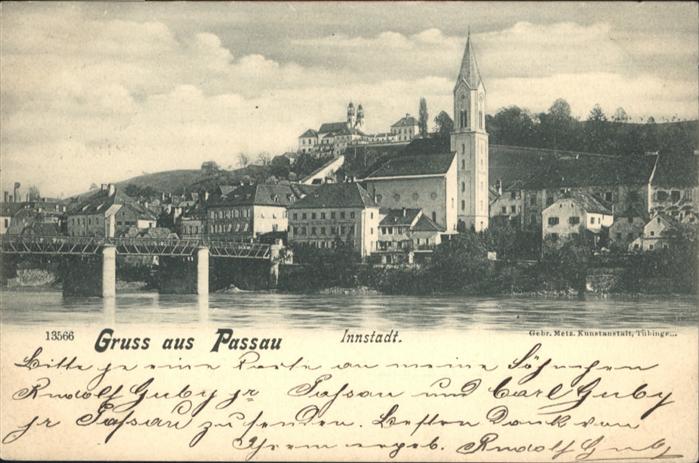 13566 Gruss aus Passau Innstadt. Gebr. Metz, Kunstanstalt, Tübinge...
Bitte je eine Karte an meine Söhnchen
Rudolf Guby jr Passau und Carl Guby
jr Passau zu senden. Besten Dank von
Ihrem ergeb. Rudolf Guby